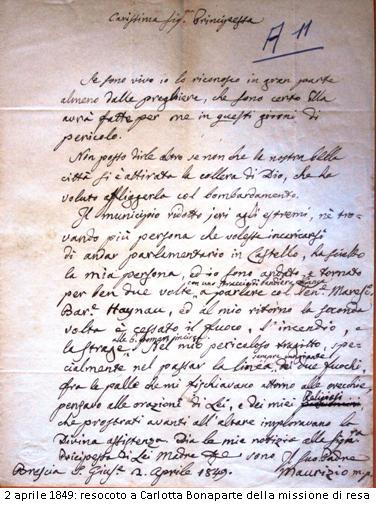 Carissima Sig.ra Principessa
A 11
Se sono vivo io lo riconosco in gran parte
almeno dalle preghiere, che sono certo Ella
avrà fatte per me in questi giorni di
pericolo.
Non posso dirle altro se non che la nostra bella
città si è attirata la collera di Dio, che ha
voluto affliggerla col bombardamento.
Il municipio ridotto jeri agli estremi, nè tro-
vando più persona che volesse incaricarsi
di andar parlamentario in Castello, ha scelto
la mia persona, ed io sono andato e tornato
con una bandiera bianca
per ben due volte a parlare col Ten.e Maresc.
Bar.e Haynau, ed al mio ritorno la seconda
volta è cessato il fuoco, l'incendio, e
la strage. Nel mio pericoloso tragitto, spe-
cialmente nel passar la linea, ai due fuochi,
fra le palle che mi fischiavano attorno alle orecchie,
pensavo alle orazioni di Lei, e dei miei Religiosi
che prostrati avanti all'altare imploravano la
Divina assistenza. Dia la mia notizia alla
di Lei Madre sono Il Suo Padre
Brescia S. Gius.e 2. Aprile 1849. Maurizio m.p.
2 aprile 1849: resocoto a Carlotta Bonaparte della missione di resa